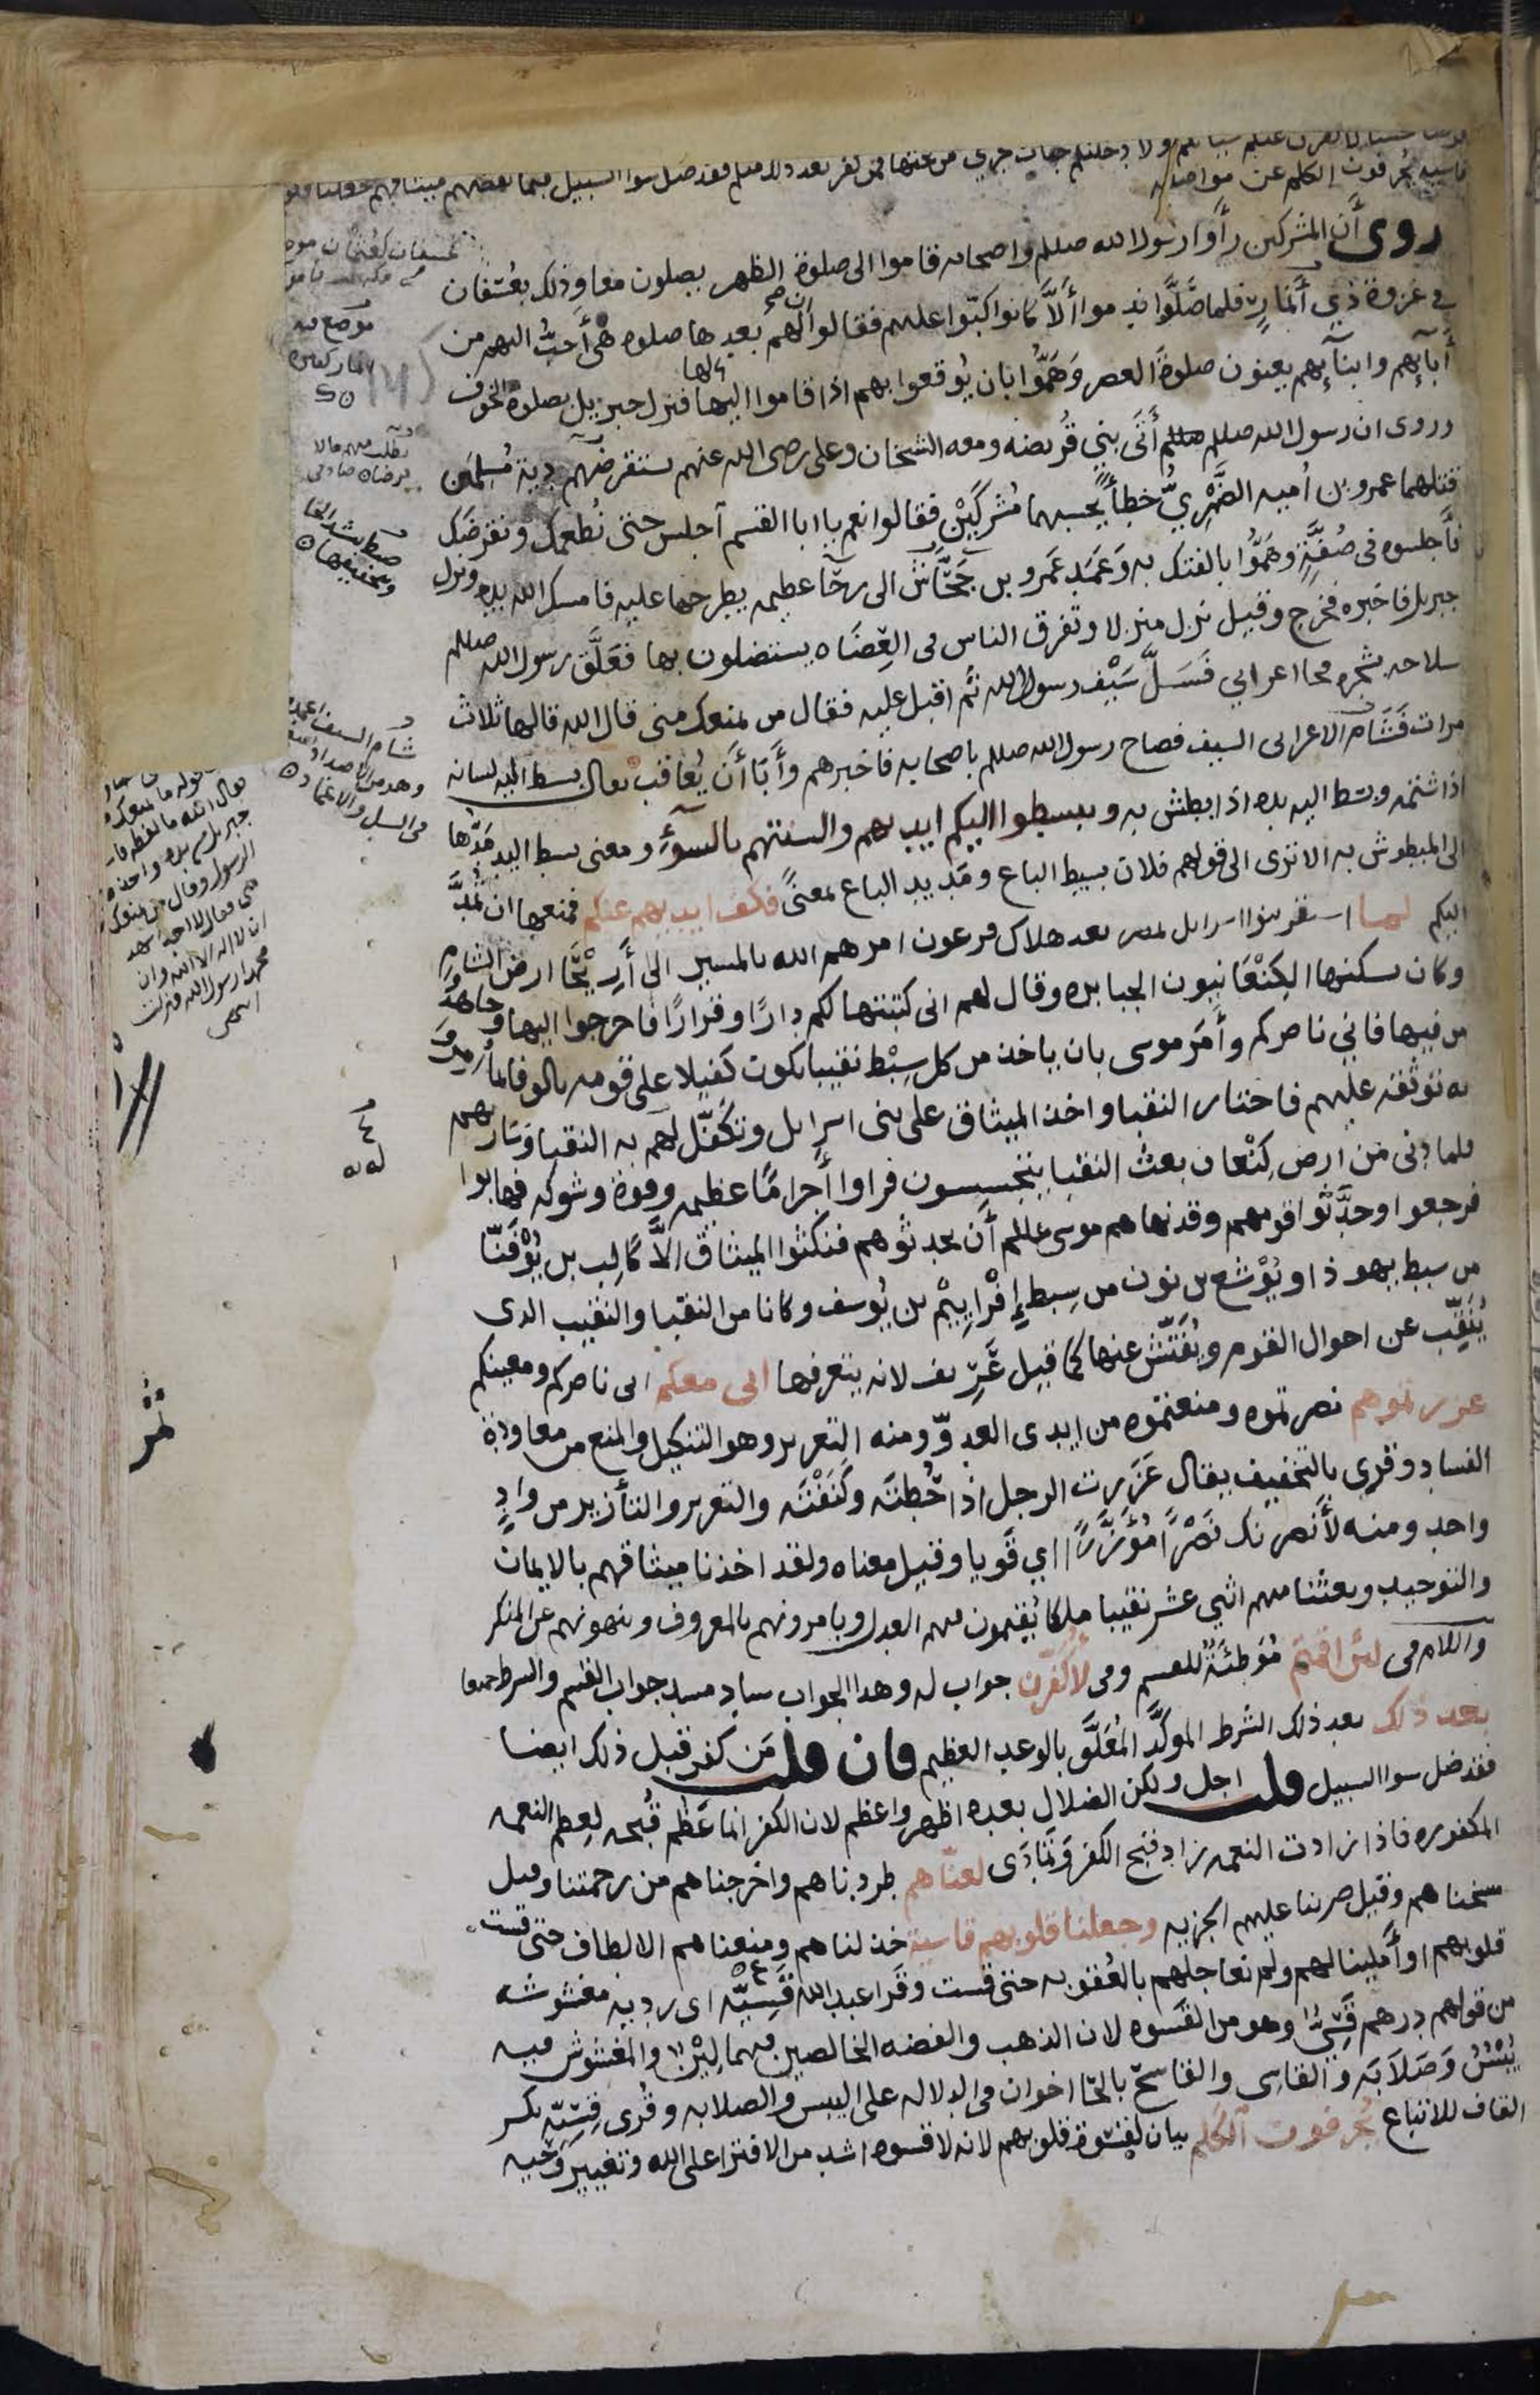 قرضا حسنا لاكفرن عنكم سياتكم ولادخلنكم جنات تجري من تحتها فمن كفر بعد ذلك منكم فقد ضل سوا السبيل فبما نقضهم ميثاقهم
قاسية يحرفون الكلم عن مواضعه
روى أن المشركين رأوا رسول الله صللم واصحابه قاموا الى صلوة الظهر يصلون معا وذلك بعسفان
في غزوة ذي أنمار فلما صلوا ندموا ألا كانوا اكبوا عليهم فقالوا ان لهم بعدها صلوه هي أحب اليهم من
أبآيهم وابنآيهم يعنون صلوة العصر وهموا بان يوقعوا بهم اذا قاموا اليها فنزل جبريل بصلوة الخوف
وروى ان رسول الله صللم أتى بني قريضه ومعه الشخان وعلى رضى الله عنهم يستقرضهم دية مسلمين
قتلهما عمرو بن أميه الضمري خطأ يحسبهما مشركين فقالوا نعم يا ابا القسم آجلس حتى نطعمك ونقرضك
فأجلسوه فى صفة وهموا بالفتك به وعمد عمرو بن جحاش الى رحا عظيمه يطرحها عليه فامسك الله يده ونزل
جبريل فاخبره فخرج وقيل نزل منزلا وتفرق الناس فى العضاه يستضلون بها فعلق رسول الله صللم
سلاحه بشجره فجا اعرابي فسل سيف رسول الله ثم اقبل عليه فقال من يمنعك منى قال الله قالها ثلاث
مرات فشام الاعرابى السيف فصاح رسول الله صللم باصحابه فاخبرهم وأبا أن يعاقب يقال بسط اليه لسانه
اذا شتمه وبسط اليه يده اذا بطش به ويبسطوا اليكم ايديهم والسنتهم بالسوء ومعنى بسط اليد مدها
الى المبطوش به الا ترى الى قولهم فلان بسيط الباع ومديد الباع بمعنى فكف ايديهم عنكم فمنعها ان تمد
اليكم لما استقر بنوا اسرايل بمصر بعد هلاك فرعون امرهم الله بالمسير الى أريحا ارض الشام
وكان يسكنها الكنعانيون الجبابره وقال لهم انى كتبتها لكم دارا وقرارا فاخرجوا اليها وجاهدوا
من فيها فاني ناصركم وأمر موسى بان ياخذ من كل سبط نقيبا يكون كفيلا على قومه بالوفا بما أمروا
به توثقه عليهم فاختار النقبا واخذ الميثاق على بنى اسرايل وتكفل لهم به النقبا وسار بهم
فلما دنى من ارض كنعان بعث النقبا يتجسسون فراوا أجراما عظيمه وقوة وشوكه فهابوا
فرجعوا وحدثوا قومهم وقد نهاهم موسى عللم أن يحدثوهم فنكثوا الميثاق إلا كالب بن يوفنا
من سبط يهوذا ويوشع بن نون من سبط إفراييم بن يوسف وكانا من النقبا والنقيب الذى
ينقب عن احوال القوم ويفتش عنها كما قيل عريف لانه يتعرفها انى معكم انى ناصركم ومعينكم
عزرتموهم نصرتموه ومنعتموه من ايدى العدو ومنه التعزير وهو التنكيل والمنع من معاودة
الفساد وقرى بالتخفيف يقال عزرت الرجل اذا حطته وكنفته والتعزير والتأزير من واد
واحد ومنه لأنصرنك نصرا مؤزرا اي قويا وقيل معناه ولقد اخذنا ميثاقهم بالايمان
والتوحيد وبعثنا منهم اثني عشر نقيبا ملكا يقيمون فيهم العدل ويامرونهم بالمعروف وينهونهم عن المنكر
واللام فى لئن اقمتم موطئة للقسم وفى لأكفرن جواب له وهذا الجواب ساد مسد جواب القسم والشرط جميعا
بعد ذلك بعد ذلك الشرط الموكد المعلق بالوعد العظيم فان قلت من كفر قبل ذلك ايضا
فقد ضل سوا السبيل قلت اجل ولكن الضلال بعده اظهر واعظم لان الكفر انما عظم قبحه لعظم النعمه
المكفوره فاذا زادت النعمه زاد قبح الكفر وتمادى لعناهم طردناهم واخرجناهم من رحمتنا وقيل
مسخناهم وقيل ضربنا عليهم الجزيه وجعلنا قلوبهم قاسية خذلناهم ومنعناهم الالطاف حتى قست
قلوبهم او أملينا لهم ولم نعاجلهم بالعقوبه حتى قست وقرا عبد الله قسيه اى رديه مغشوشه
من قولهم درهم قسي وهو من القسوه لان الذهب والفضه الخالصين فيهما لين والمغشوش فيه
يبس وصلابه والقاسى والقاسح بالحا اخوان فى الدلاله على اليبس والصلابه وقرى قسيه بكسر
القاف للاتباع يحرفون الكلم بيان لقسوة قلوبهم لانه لا قسوه اشد من الافترا على الله وتغيير وحيه
عسفان كعثمان موضع
موضع فيه
يطلب منهم مالا
ضبط بشد الحا
وتخفيفها
شام السيف اغمده
وهو من الاضداد
فى السل والاغماد
قوله ما يمنعك
جبريل من يده واخذه
الرسول وقال من يمنعك
منى فقال لا احد اشهد
ان لا اله الا الله وان
محمدا رسول الله فنزلت